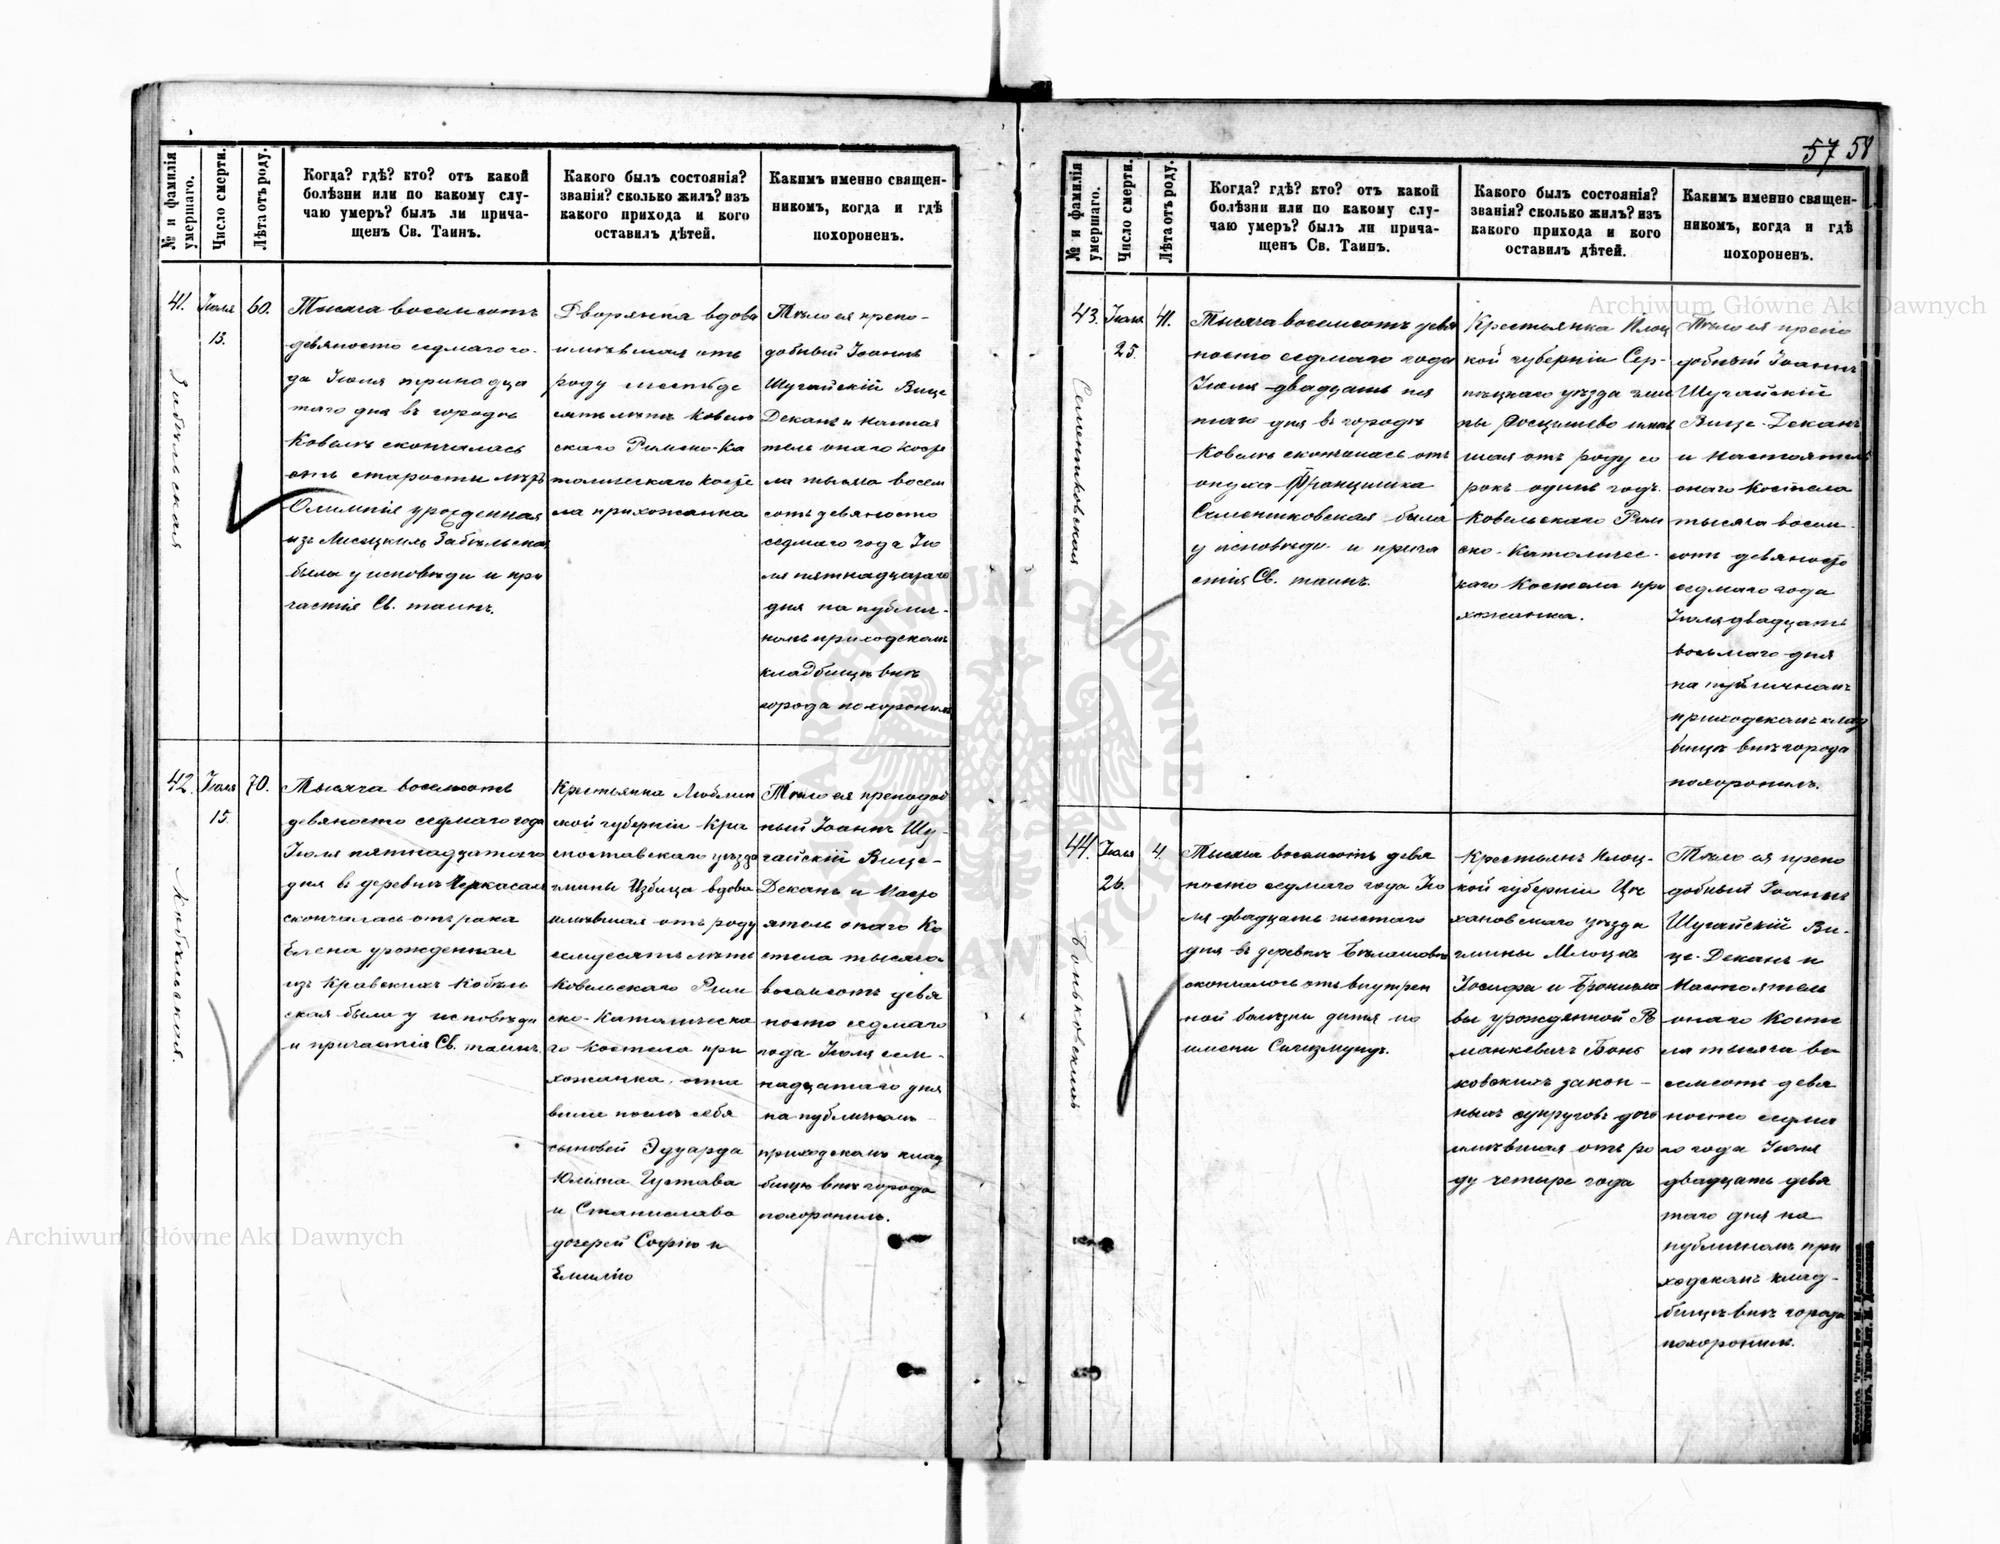 № и фамилія умершаго.
Число смерти.
Лѣта отъ роду.
Когда? гдѣ? кто? отъ какой
болѣзни или по какому слу-
чаю умеръ? былъ ли прича-
щенъ Св. Таинъ.
Какого былъ состоянія?
званія? сколько жилъ? изъ
какого прихода и кого
оставилъ дѣтей.
Какимъ именно священ-
никомъ, когда и гдѣ
похороненъ.
41.
Забѣльская
Іюля
13.
60.
Тысяча восемсотъ
девяносто седмаго го-
да Іюля тринадца
таго дня въ городѣ
Ковелѣ скончалась
отъ старости
Олимпія урожденная
изъ Забѣльская
была у исповѣди и при
частія Св. таинъ.
Дворянка вдова
имѣвшая отъ
роду шестьде
сятъ лѣтъ Ковель
скаго Римско-Ка
толическаго косте
ла прихожанка
Тѣло ея препо-
добный Іоаннъ
Шугайскій Вице
Деканъ и Настоя
тель онаго косте
ла тысяча восем
сотъ девяносто
седмаго года Ію
ля пятнадцатаго
дня на публич-
номъ приходскомъ
кладбищѣ внѣ
города похоронилъ
42.
Кобыльская.
Іюля
15.
70.
Тысяча восемсотъ
девяносто седмаго года
Іюля пятнадцатаго
дня въ деревнѣ Черкасахъ
скончалась отъ рака
Елена урожденная
изъ Кравскихъ Кобыль
ская была у исповѣди
и причастія Св. таинъ.
Крестьянка Люблин
ской губерніи Кра
сноставскаго уѣзда
гмины Избица вдова
имѣвшая отъ роду
семдесятъ лѣтъ
Ковельскаго Рим
ско-Католическа
го костела при
хожанка, оста
вила послѣ себя
сыновей Эдуарда
Юліяна Густава
и Станислава
дочерей Софію и
Емилію
Тѣло ея преподоб
ный Іоаннъ Шу-
гайскій Вице-
Деканъ и Насто
ятель онаго Ко
стела тысяча
восемсотъ девя
носто седмаго
года Іюля сем-
надцатаго дня
на публичномъ
приходскомъ клад
бищѣ внѣ города
похоронилъ.
57 58
№ и фамилія умершаго.
Число смерти.
Лѣта отъ роду.
Когда? гдѣ? кто? отъ какой
болѣзни или по какому слу-
чаю умеръ? былъ ли прича-
щенъ Св. Таинъ.
Какого былъ состоянія?
званія? сколько жилъ? изъ
какого прихода и кого
оставилъ дѣтей.
Какимъ именно священ-
никомъ, когда и гдѣ
похороненъ.
43.
Селентковская
Іюля
25.
41.
Тысяча восемсотъ девя
носто седмаго года
Іюля двадцать пя
таго дня въ городѣ
Ковелѣ скончалась отъ
опуха Францишка
Селентковская была
у исповѣди и прича
стія Св. таинъ.
Крестьянка Плоц
кой губерніи Сер-
пецкаго уѣзда гми
ны Росцишево имѣв
шая отъ роду со
рокъ одинъ годъ
Ковельскаго Рим
ско-Католичес-
каго Костела при
хожанка.
Тѣло ея препо
добный Іоаннъ
Шугайскій
Вице-Деканъ
и Настоятель
онаго Костела
тысяча восем-
сотъ девяносто
седмаго года
Іюля двадцать
восьмаго дня
на публичномъ
приходскомъ клад
бищѣ внѣ города
похоронилъ.
44.
Боньковскихъ
Іюля
26.
4.
Тысяча восемсотъ девя
носто седмаго года Ію
ля двадцать шестаго
дня въ деревнѣ Бѣлашовѣ
скончалось отъ внутрен
ной болѣзни дитя по
имени Сигизмундъ.
Крестьянъ Плоц-
кой губерніи Це
хановскаго уѣзда
гмины Млоцкъ
Іосифа и Бронисла
вы урожденной Р
манкевичъ Бонь
ковскихъ закон-
ныхъ супруговъ дочь
имѣвшая отъ ро
ду четыре года
Тѣло ея препо
добный Іоаннъ
Шугайскій Ви-
це-Деканъ и
Настоятель
онаго Косте
ла тысяча во
семсотъ девя
носто седма
го года Іюля
двадцать девя
таго дня на
публичномъ при
ходскомъ клад-
бищѣ внѣ города
похоронилъ.
Archiwum Główne Akt Dawnych
Archiwum Główne Akt Dawnych
ARCHIWUM GŁÓWNE AKT DAWNYCH